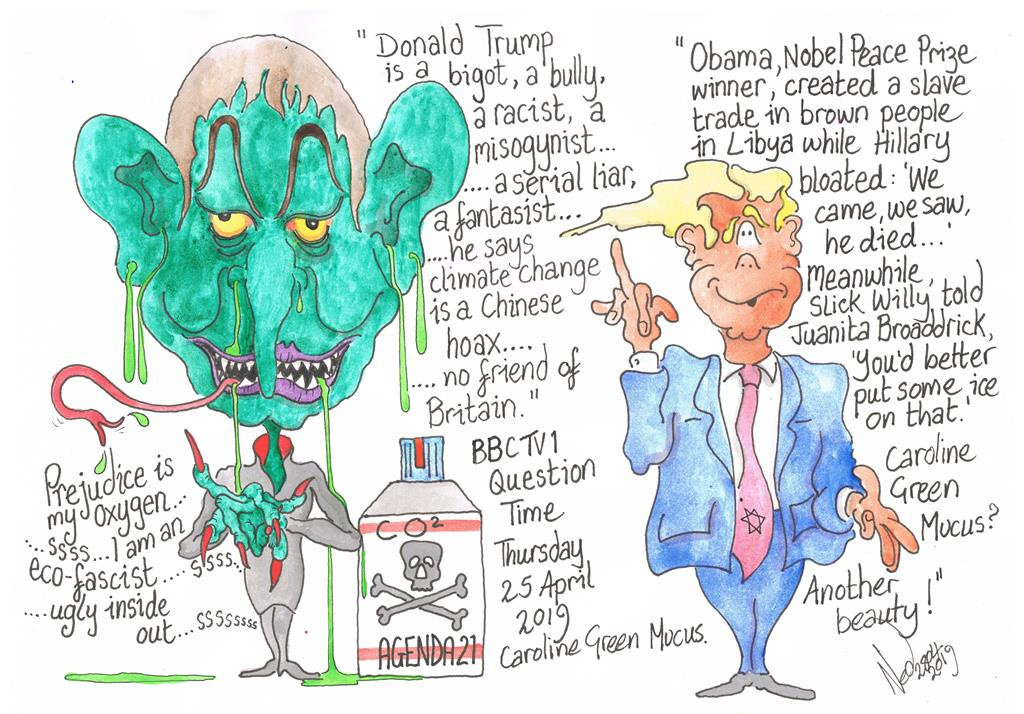 "Donald Trump
is a bigot, a bully,
a racist, a
misogynist...
....a serial liar,
a fantasist...
....he says
climate change
is a Chinese
hoax....
....no friend of
Britain."
BBC TV1
Question
Time
Thursday
25 April
2019
Caroline Green Mucus.
"Obama, Nobel Peace Prize
winner, created a slave
trade in brown people
in Libya while Hillary
bloated: 'We
came, we saw,
he died...'
Meanwhile,
Slick Willy told
Juanita Broaddrick,
'you'd better
put some ice
on that.'
Caroline
Green
Mucus?
Another
beauty!"
Prejudice is
my oxygen...
...ssss...I am an
eco-fascist....ssss...
....ugly inside
out...ssssssss
CO²
AGENDA21